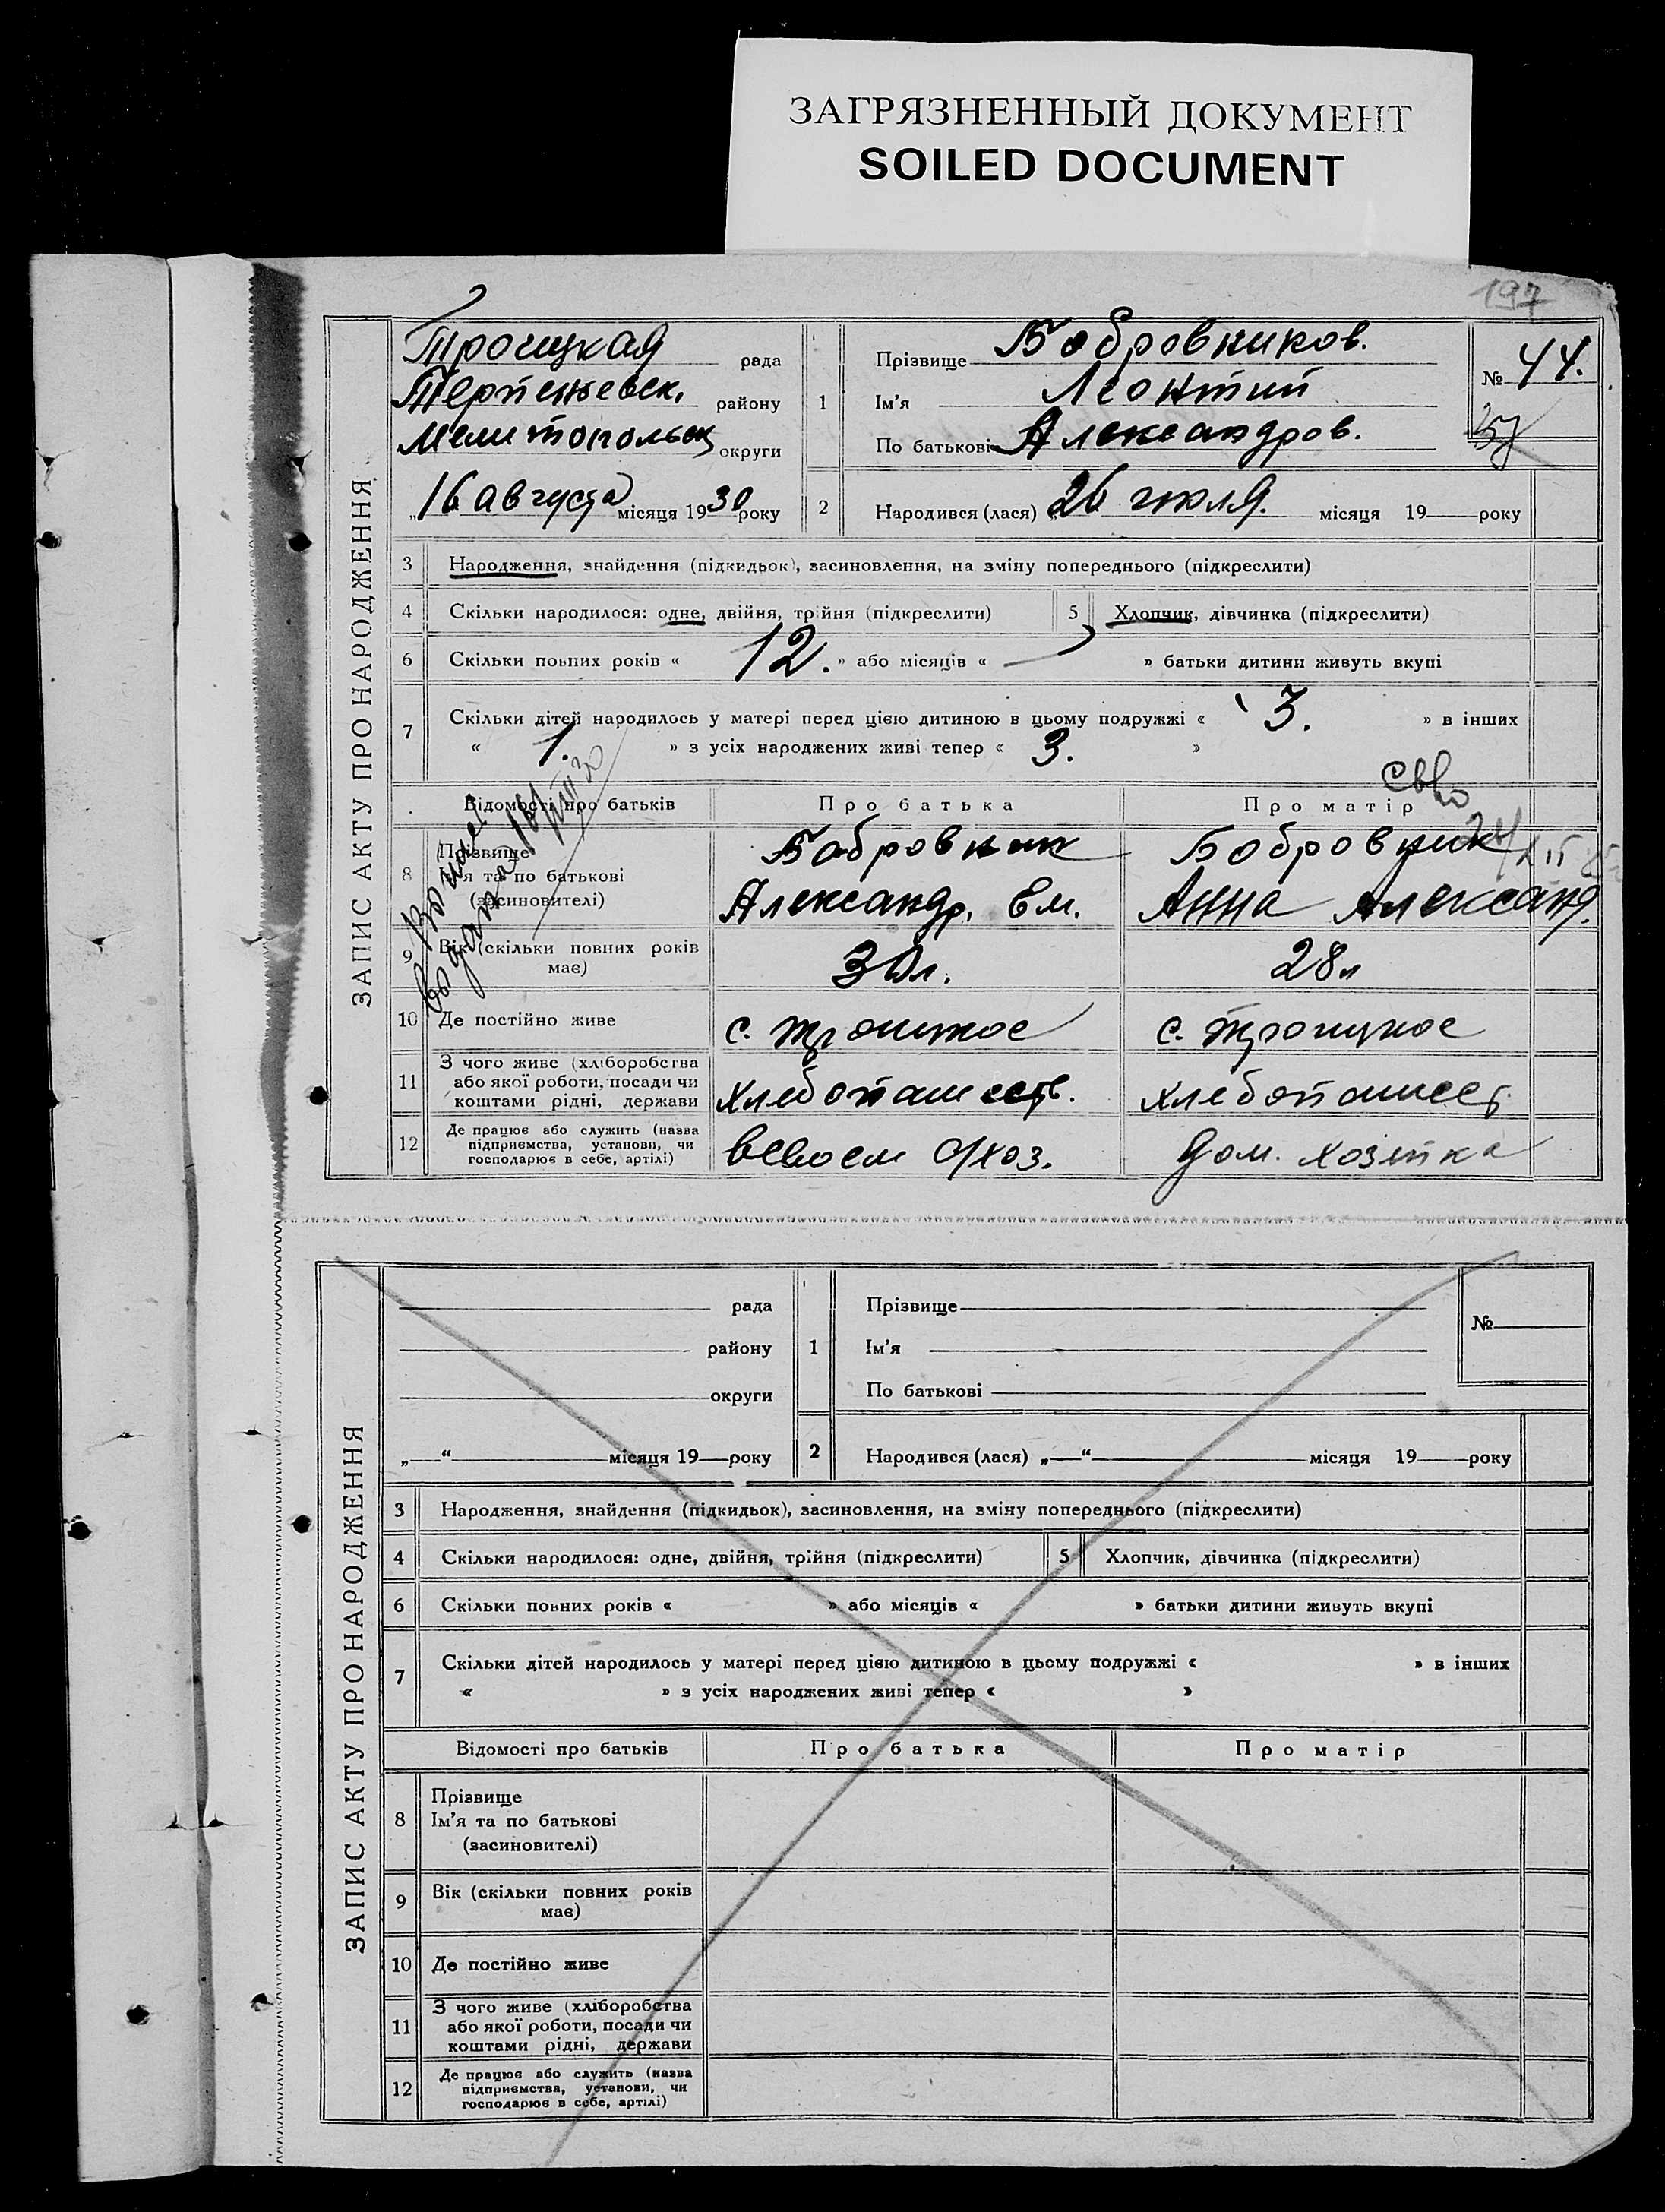 ЗАГРЯЗНЕННЫЙ ДОКУМЕНТ
SOILED DOCUMENT
197
ЗАПИС АКТУ ПРО НАРОДЖЕННЯ
Троицкая рада
Терпеньевск. району
Мелитопольск округи
„16 августа місяця 1930 року
1
Прізвище Бобровников.
Ім'я Леонтий
По батькові Александров.
№ 44.
2 Народився (лася) 26 июля. місяця 19 року
3 Народження, знайдення (підкидьок), засиновлення, на зміну попереднього (підкреслити)
4 Скільки народилося: одне, двійня, трійня (підкреслити) 5 Хлопчик, дівчинка (підкреслити)
6 Скільки повних років « 12. » або місяців « — » батьки дитини живуть вкупі
7 Скільки дітей народилось у матері перед цією дитиною в цьому подружжі « 3. » в інших
« 1. » з усіх народжених живі тепер « 3. »
Відомості про батьків Про батька Про матір
8 Прізвище Бобровник Бобровник
Ім'я та по батькові
(засиновителі) Александр. Ем. Анна Александ.
9 Вік (скільки повних років має) 30л. 28л
10 Де постійно живе с. Троицкое с. Троицкое
11 З чого живе (хліборобства
або якої роботи, посади чи
коштами рідні, держави хлебопашеств. хлебопашест
12 Де працює або служить (назва
підприємства, установи, чи
господарює в себе, артілі) всвоем с/хоз. дом. хозяйка
ЗАПИС АКТУ ПРО НАРОДЖЕННЯ
рада
району
округи
„—“ місяця 19 року
1
Прізвище
Ім'я
По батькові
№
2 Народився (лася) „—“ місяця 19 року
3 Народження, знайдення (підкидьок), засиновлення, на зміну попереднього (підкреслити)
4 Скільки народилося: одне, двійня, трійня (підкреслити) 5 Хлопчик, дівчинка (підкреслити)
6 Скільки повних років « » або місяців « » батьки дитини живуть вкупі
7 Скільки дітей народилось у матері перед цією дитиною в цьому подружжі « » в інших
« » з усіх народжених живі тепер « »
Відомості про батьків Про батька Про матір
8 Прізвище
Ім'я та по батькові
(засиновителі)
9 Вік (скільки повних років
має)
10 Де постійно живе
11 З чого живе (хліборобства
або якої роботи, посади чи
коштами рідні, держави
12 Де працює або служить (назва
підприємства, установи, чи
господарює в себе, артілі)